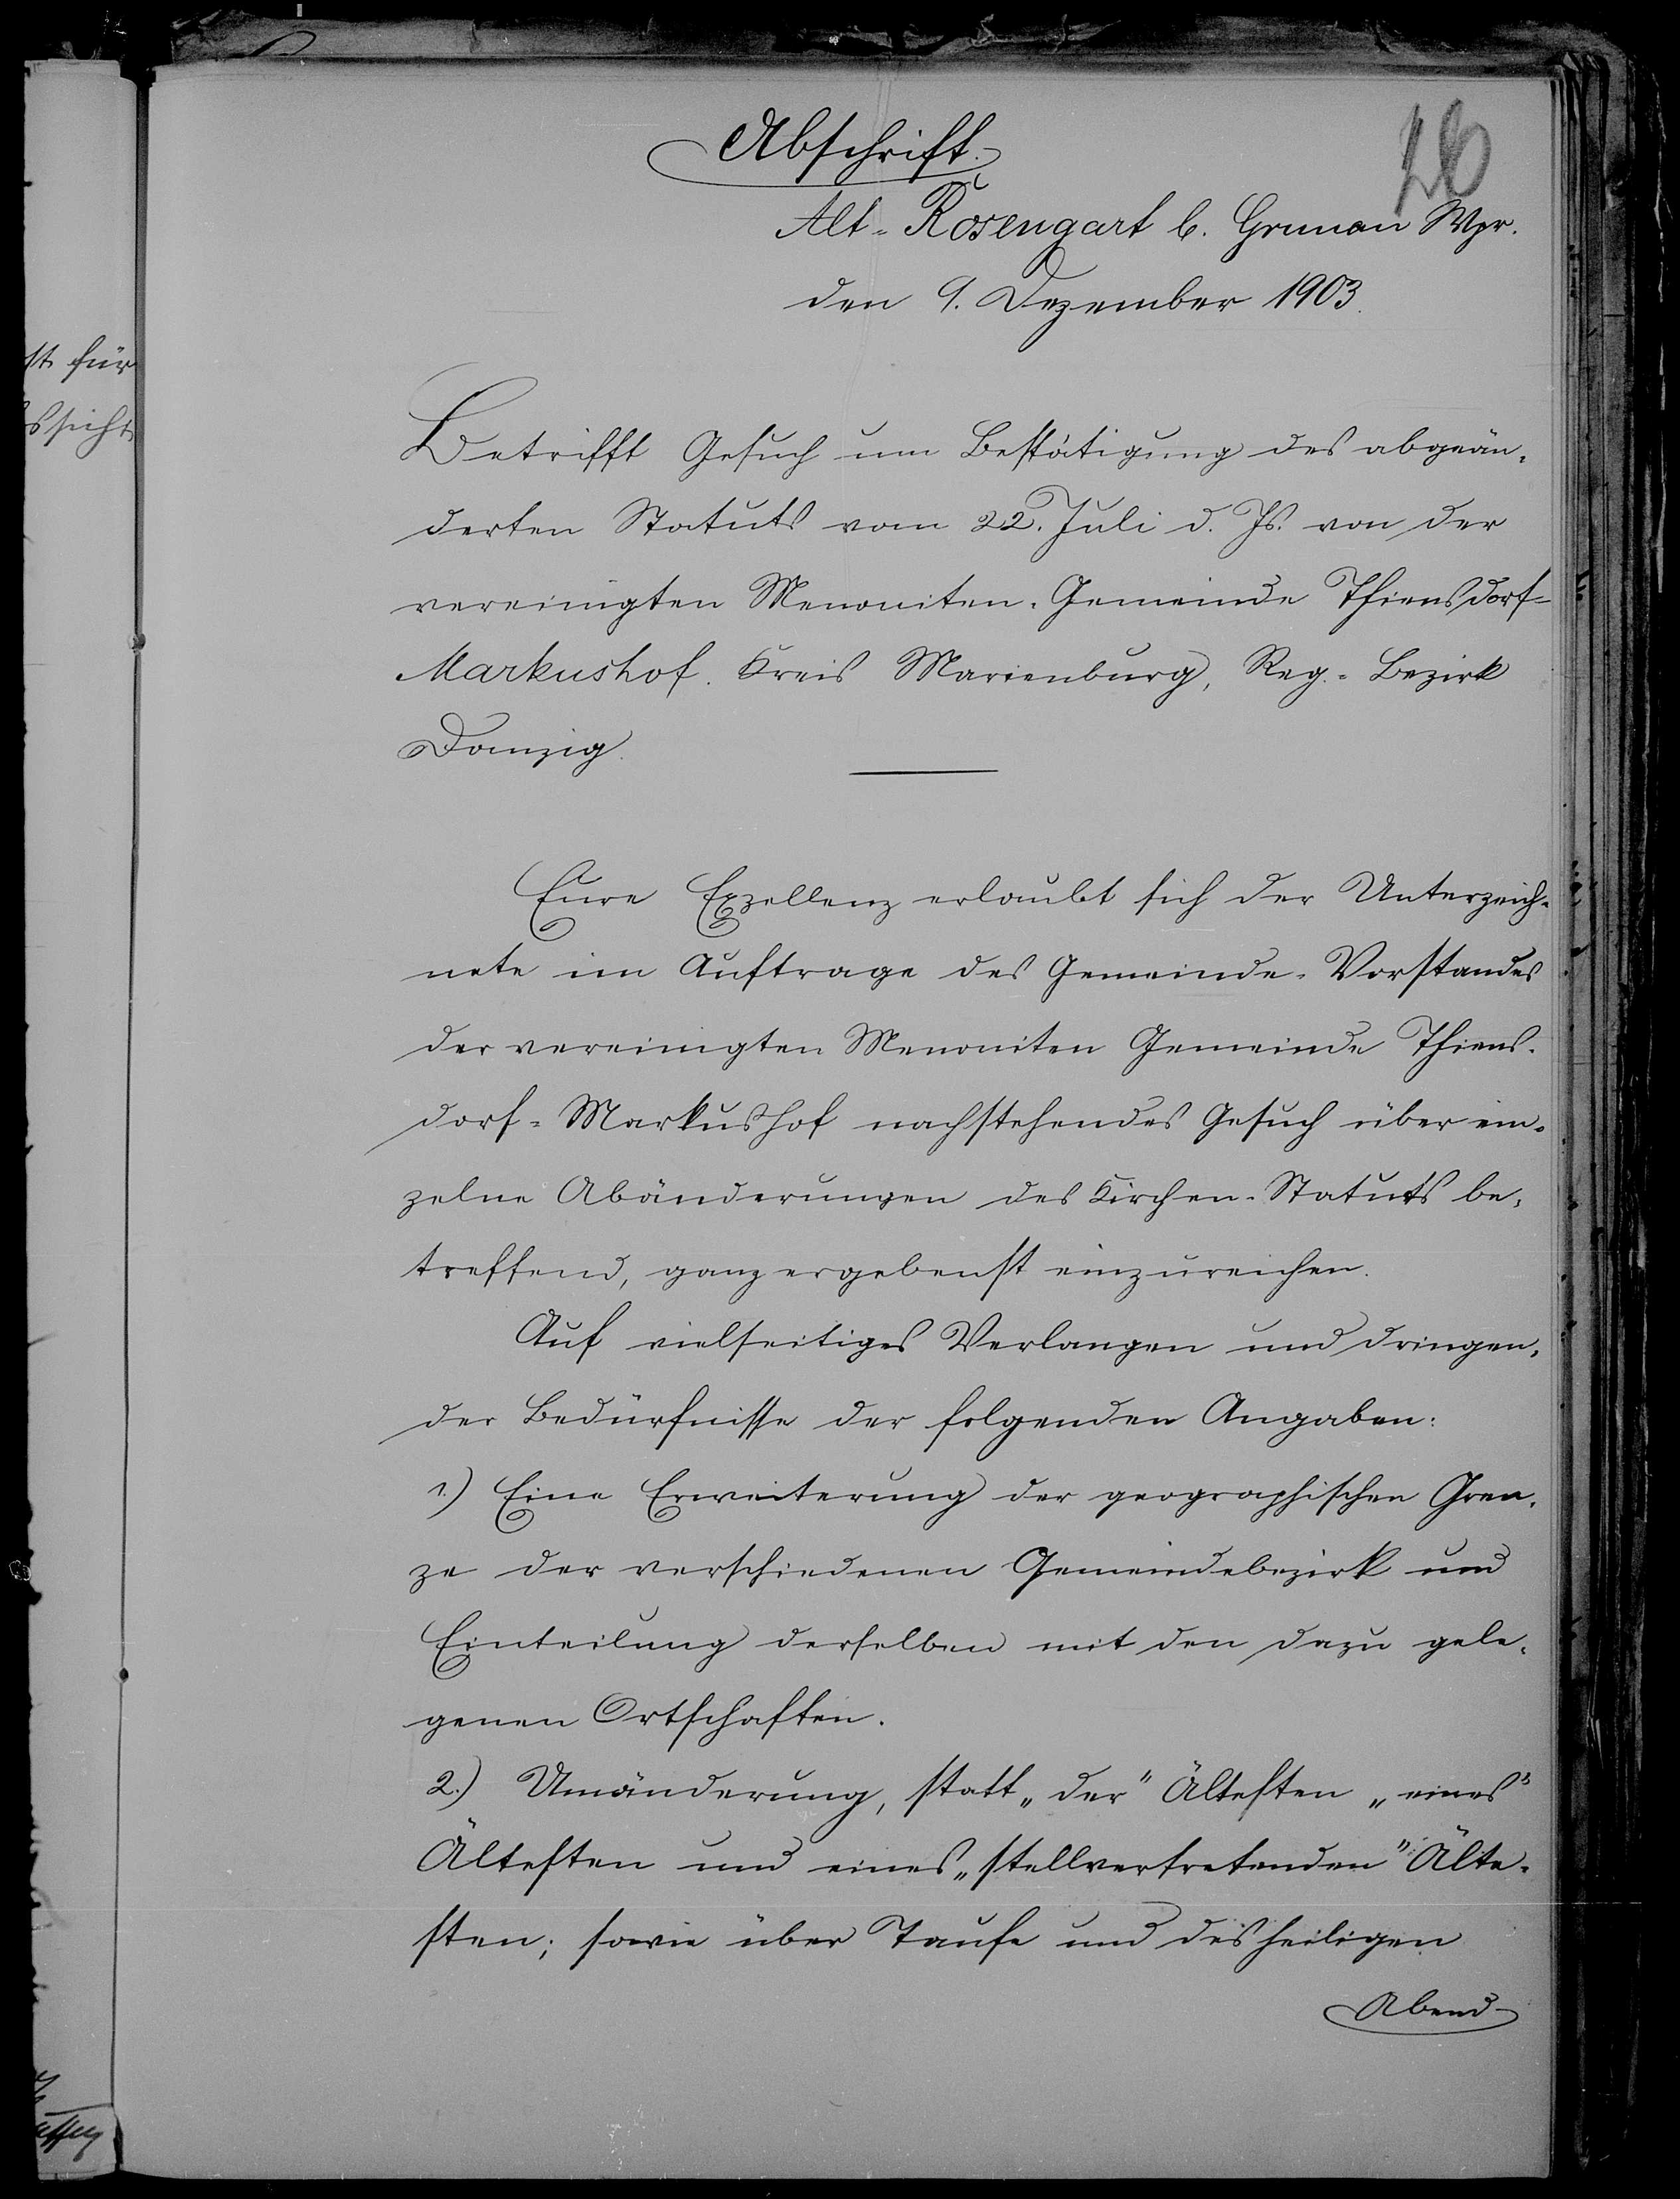 Abschrift.
26
Alt-Rosengart b. Grunau Wpr.
den 9. Dezember 1903.
st für
ssicht
Betrifft Gesuch um Bestätigung des abgeän-
derten Statuts vom 22. Juli d. Js. von der
vereinigten Menoniten-Gemeinde Thiensdorf-
Markushof. Kreis Marienburg, Reg.-Bezirk
Danzig.
Eure Exzellenz erlaubt sich der Unterzeich-
nete im Auftrage des Gemeinde-Vorstandes
der vereinigten Menoniten Gemeinde Thiens-
dorf-Markushof nachstehendes Gesuch über ein-
zelne Abänderungen des Kirchen-Statuts be-
treffend, ganz ergebenst einzureichen.
Auf vielseitiges Verlangen und dringen-
der Bedürfnisse der folgenden Angaben:
1.) Eine Erweiterung der geographischen Gren-
ze der verschiedenen Gemeindebezirk und
Einteilung derselben mit den dazu gele-
genen Ortschaften.
2.) Umänderung, statt „der" Ältesten „eines"
Ältesten und eines „stellvertretenden" Älte-
sten; sowie über Taufe und des heiligen
Abend-